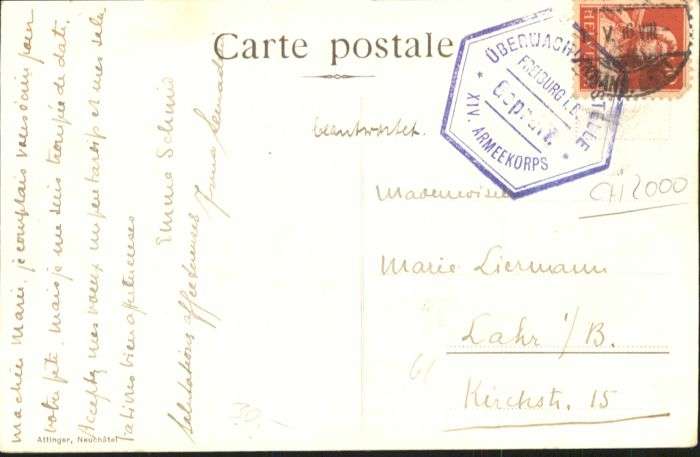 Carte postale
ÜBERWACHUNGSSTELLE
FREIBURG i. B.
Geprüft
* XIV. ARMEEKORPS *
HELVETIA
beantwortet.
Mademoiselle
Marie Liermann
Lahr i/B.
Kirchstr. 15
CH 2000
61
30.-
ma chère Marie, je comptais vous écrire pour
votre fête, mais je me suis trompée de date.
Acceptez mes vœux un peu tardifs et mes salu
tations bien affectueuses
Emma Schmid
Salutations affectueuses
Attinger, Neuchâtel